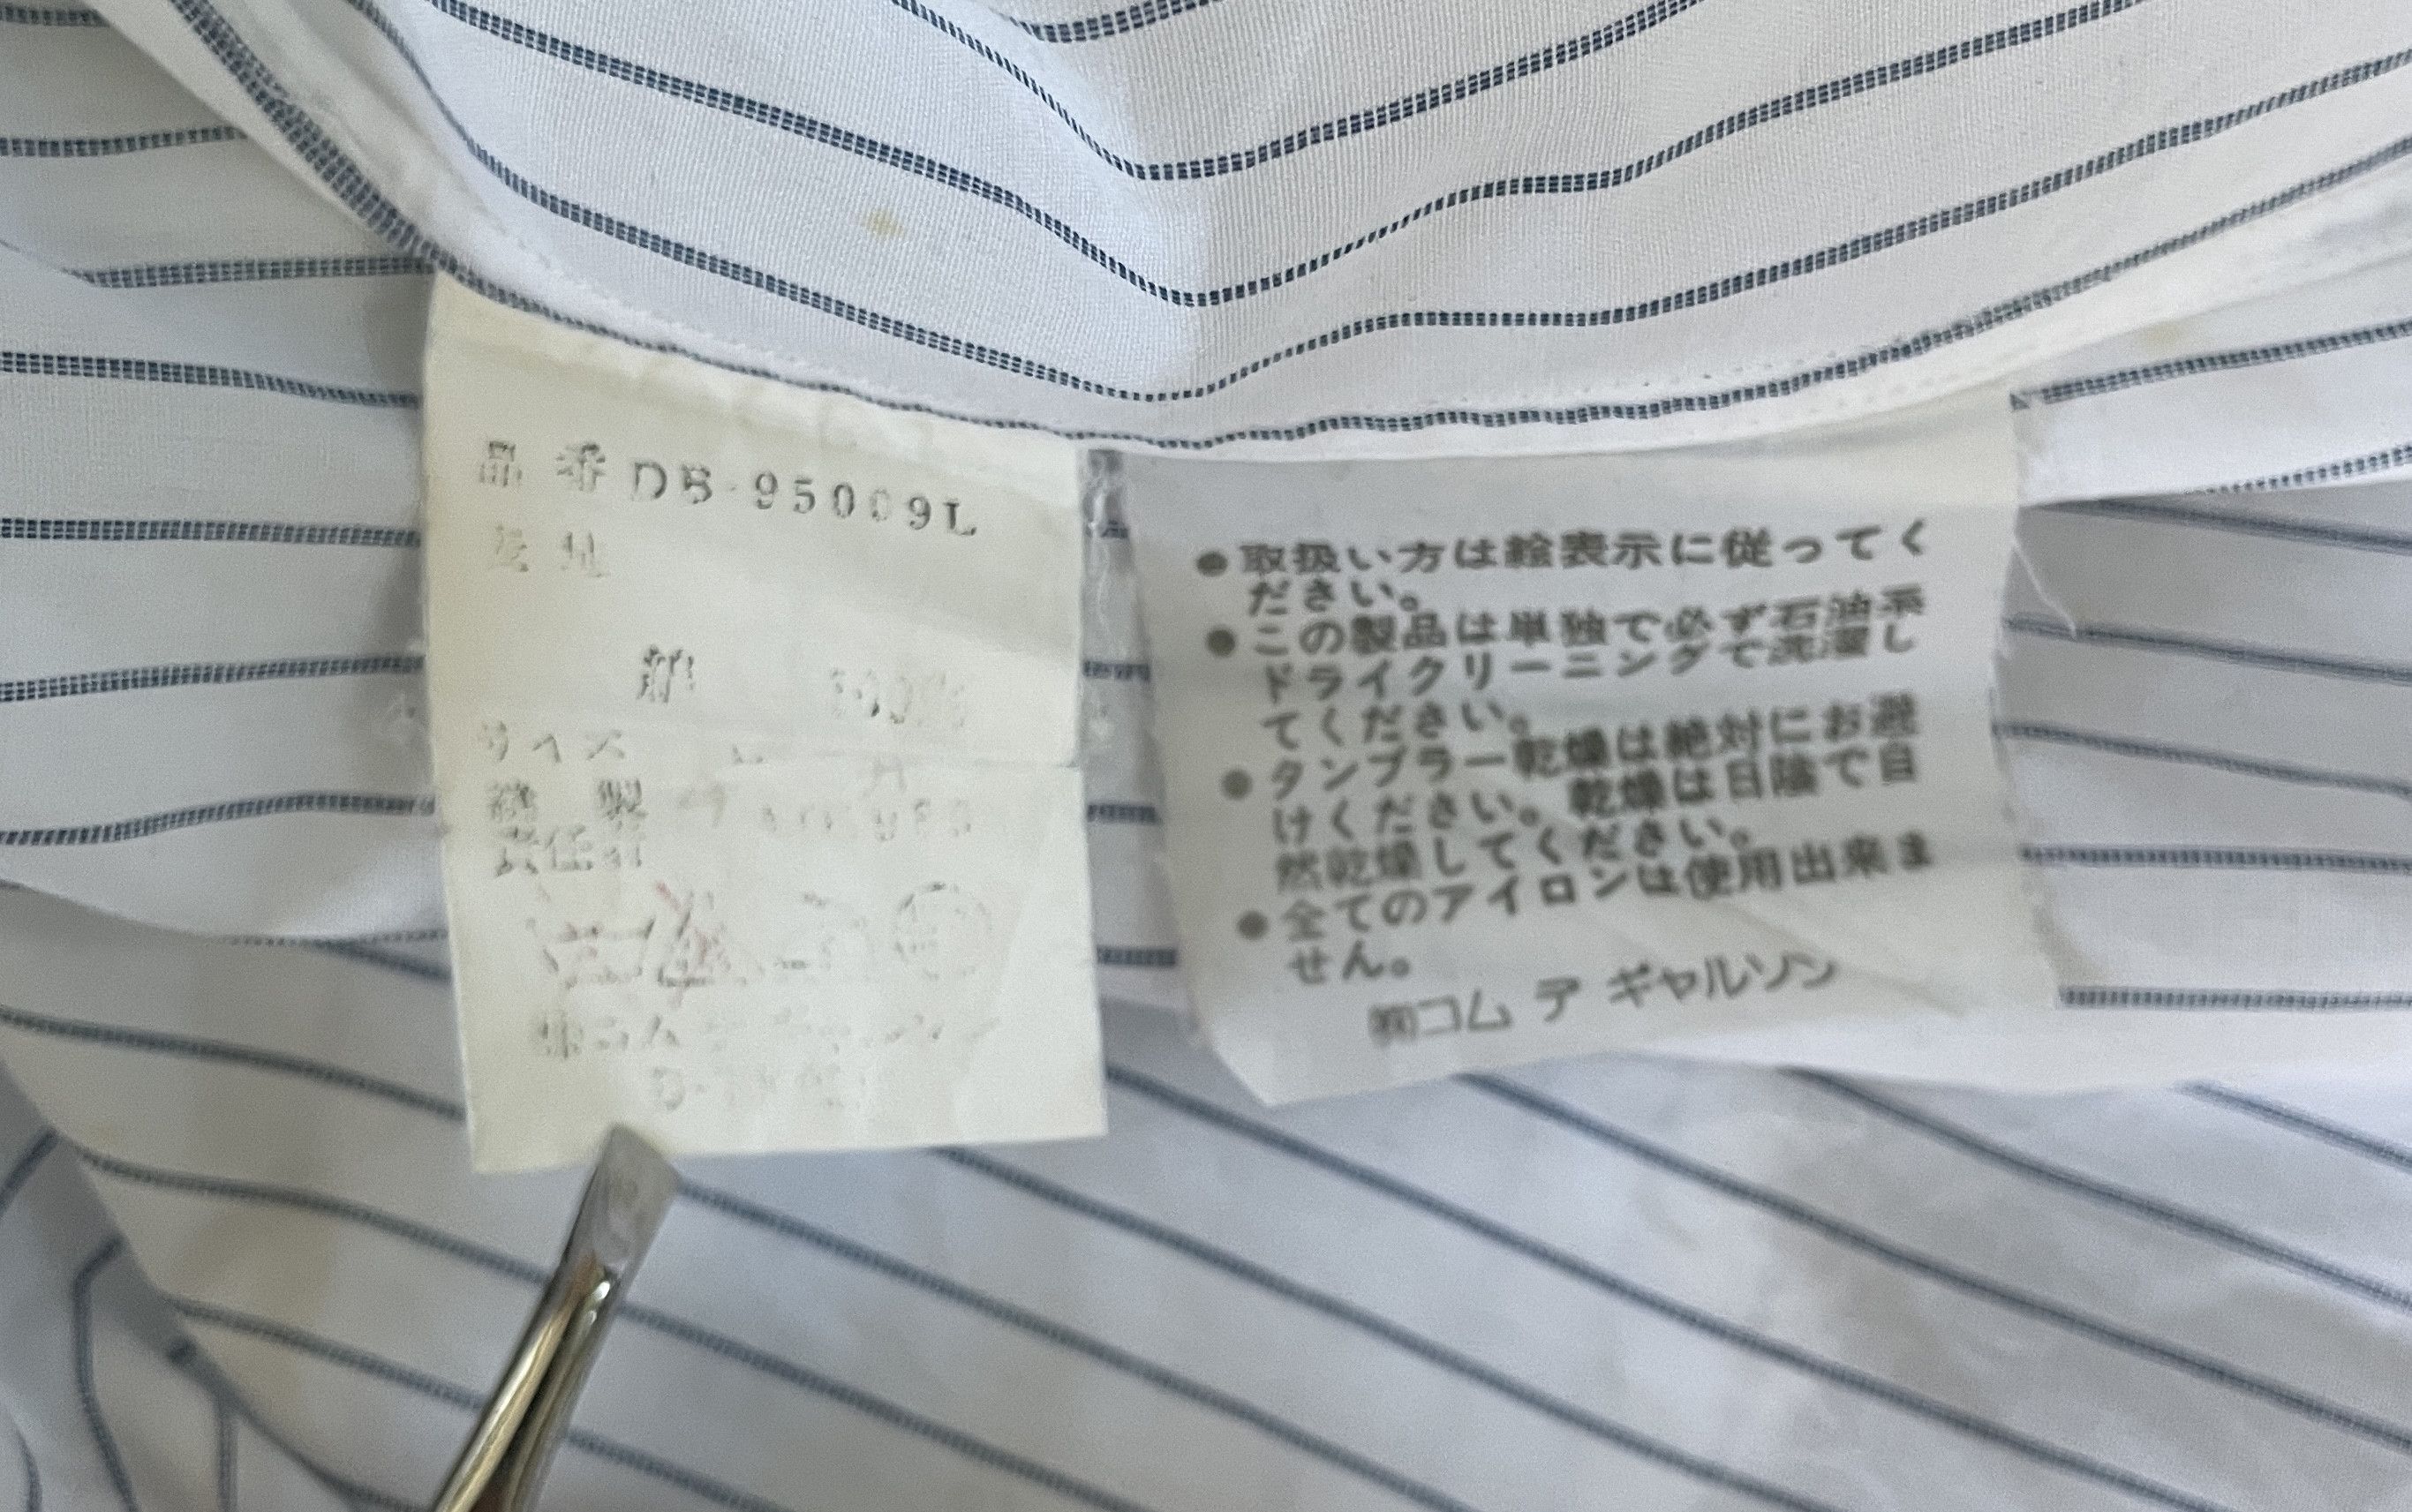 品番 DB-95009L
表地
綿
サイズ
縫製
責任者
● 取扱い方は絵表示に従ってく
ださい。
● この製品は単独で必ず石油系
ドライクリーニングで洗濯し
てください。
● タンブラー乾燥は絶対にお避
けください。乾燥は日陰で自
然乾燥してください。
● 全てのアイロンは使用出来ま
せん。
㈱コム デ ギャルソン